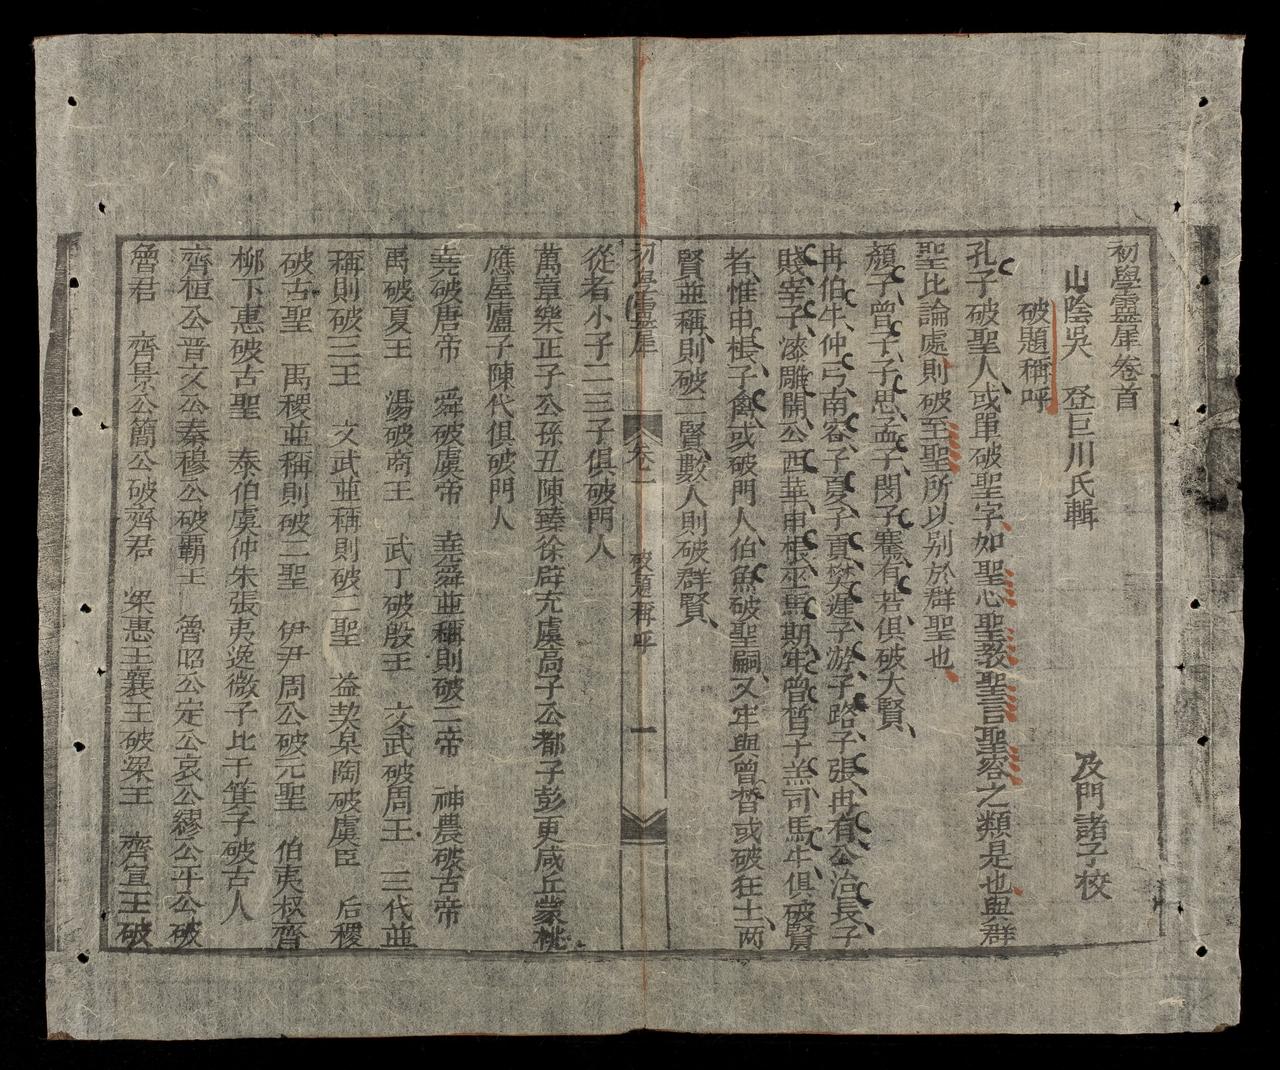 初學靈犀卷首
山陰吳　登巨川氏輯　及門諸子校
破題稱呼
孔子破聖人或單破聖字如聖心聖教聖言聖容之類是也與群
聖比論處則破至聖所以別於群聖也
顏子曾子子思孟子閔子騫有若俱破大賢
冉伯牛仲弓南容子夏子貢樊遲子游子路子張冉有公冶長子
賤宰子漆雕開公西華申棖巫馬期牢曾晳子羔司馬牛俱破賢
者惟申棖子禽或破門人伯魚破聖嗣又牢與曾晳或破狂士兩
賢並稱則破二賢數人則破群賢
初學靈犀　卷一　破題稱呼　一
從者小子二三子俱破門人
萬章樂正子公孫丑陳臻徐辟充虞高子公都子彭更咸丘蒙桃
應屋廬子陳代俱破門人
堯破唐帝　舜破虞帝　堯舜並稱則破二帝　神農破古帝
禹破夏王　湯破商王　武丁破殷王　文武破周王　三代並
稱則破三王　文武並稱則破二聖　益契皋陶破虞臣　后稷
破古聖　禹稷並稱則破二聖　伊尹周公破元聖　伯夷叔齊
柳下惠破古聖　泰伯虞仲朱張夷逸微子比干箕子破古人
齊桓公晉文公秦穆公破霸主　魯昭公定公哀公繆公平公破
魯君　齊景公簡公破齊君　梁惠王襄王破梁王　齊宣王破